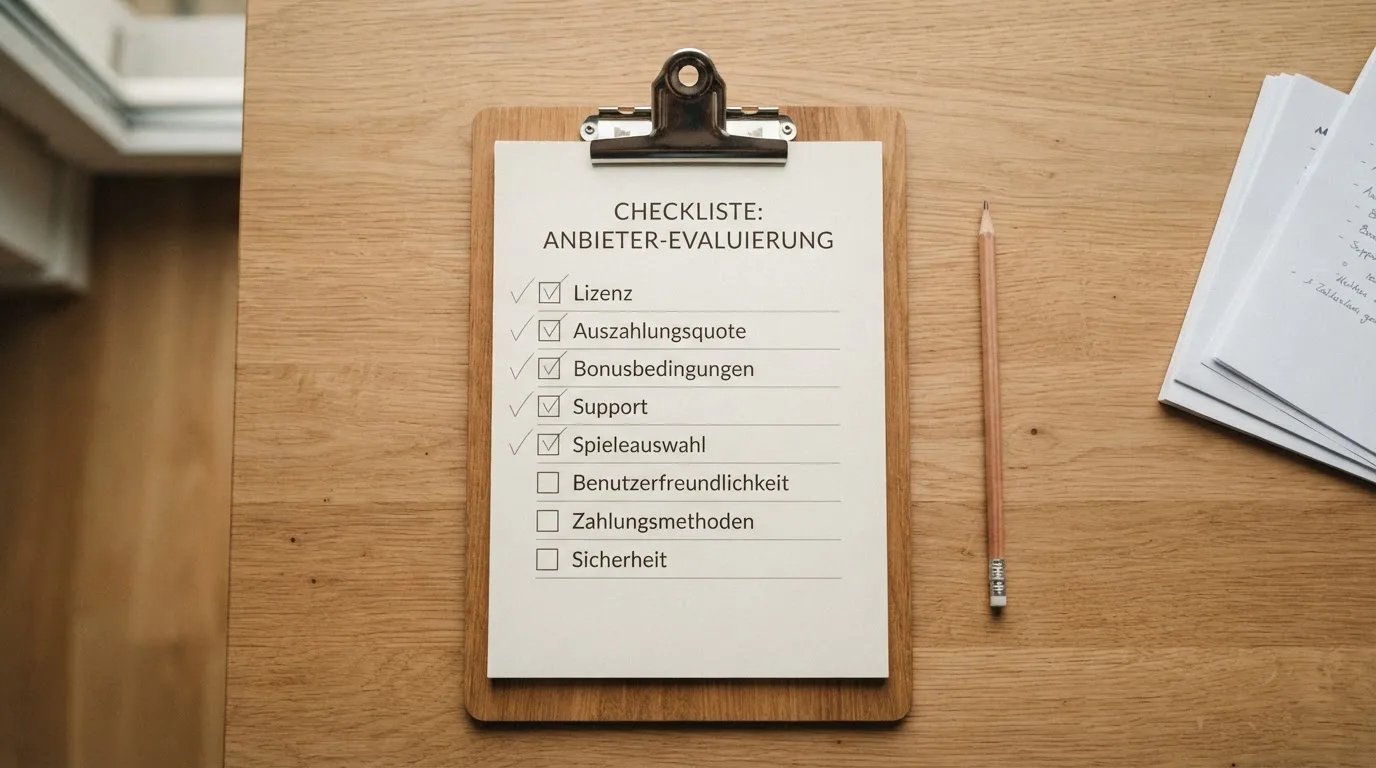 CHECKLISTE:
ANBIETER-EVALUIERUNG
Lizenz
Auszahlungsquote
Bonusbedingungen
Support
Spieleauswahl
Benutzerfreundlichkeit
Zahlungsmethoden
Sicherheit